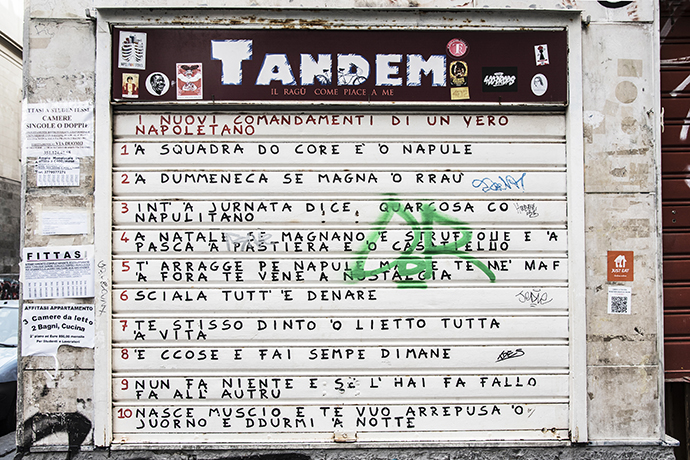 TANDEM
IL RAGÙ COME PIACE A ME
I NUOVI COMANDAMENTI DI UN VERO
NAPOLETANO
1 'A SQUADRA DO CORE E' O NAPULE
2 'A DUMMENECA SE MAGNA 'O RRAU'
3 INT' A JURNATA DICE QUARCOSA CO
NAPULITANO
4 A NATALE SE MAGNANO E STRUFFOLE E 'A
PASCA A PASTIERA E 'O
5 T' ARRAGGE DE NAPULE
A FORA TE VENE A NOSTALGIA
6 SCIALA TUTT' 'E DENARE
7 TE STISSO DINTO 'O LIETTO TUTTA
'A VITA
8 'E CCOSE E FAI SEMPE DIMANE
9 NUN FA NIENTE E SE L' HAI FA FALLO
FA ALL' AUTRU
10 NASCE MUSCIO E TE VUO ARREPUSA 'O
JUORNO E DDURMI 'A NOTTE
CAMERE
SINGOLE O DOPPIE
VIA DUOMO
FITTASI
AFFITASI APPARTAMENTO
3 Camere da letto
2 Bagni, Cucina
JUST EAT